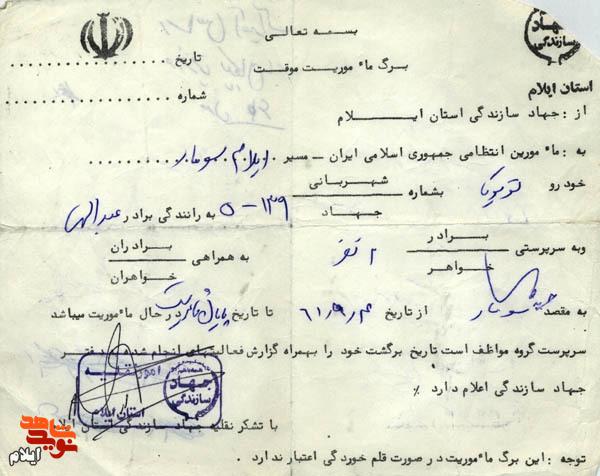 بسمه تعالی
جهاد سازندگی
استان ایلام
برگ مأموریت موقت
تاریخ ....................
شماره ....................
از : جهاد سازندگی استان ایلام
به : مأمورین انتظامی جمهوری اسلامی ایران - مسیر ایلام سومار ........
خودرو تویوتا بشماره شهربانی / جهاد ۱۳۹ - ۵ به رانندگی برادر عبدالهی
وبه سرپرستی برادر / خواهر ۲ نفر به همراهی برادران / خواهران
به مقصد سومار از تاریخ ۶۱/۹/۴ تا تاریخ پایان مأموریت در حال مأموریت میباشد
سرپرست گروه مواظف است تاریخ برگشت خود را بهمراه گزارش فعالیتهای انجام شده دفتر
جهاد سازندگی اعلام دارد ٪
با تشکر نقلیه جهاد سازندگی استان ایلام
امور نقلیه
جهاد سازندگی
استان ایلام
توجه : این برگ مأموریت در صورت قلم خوردگی اعتبار ندارد .
نوید شاهد
ایلام